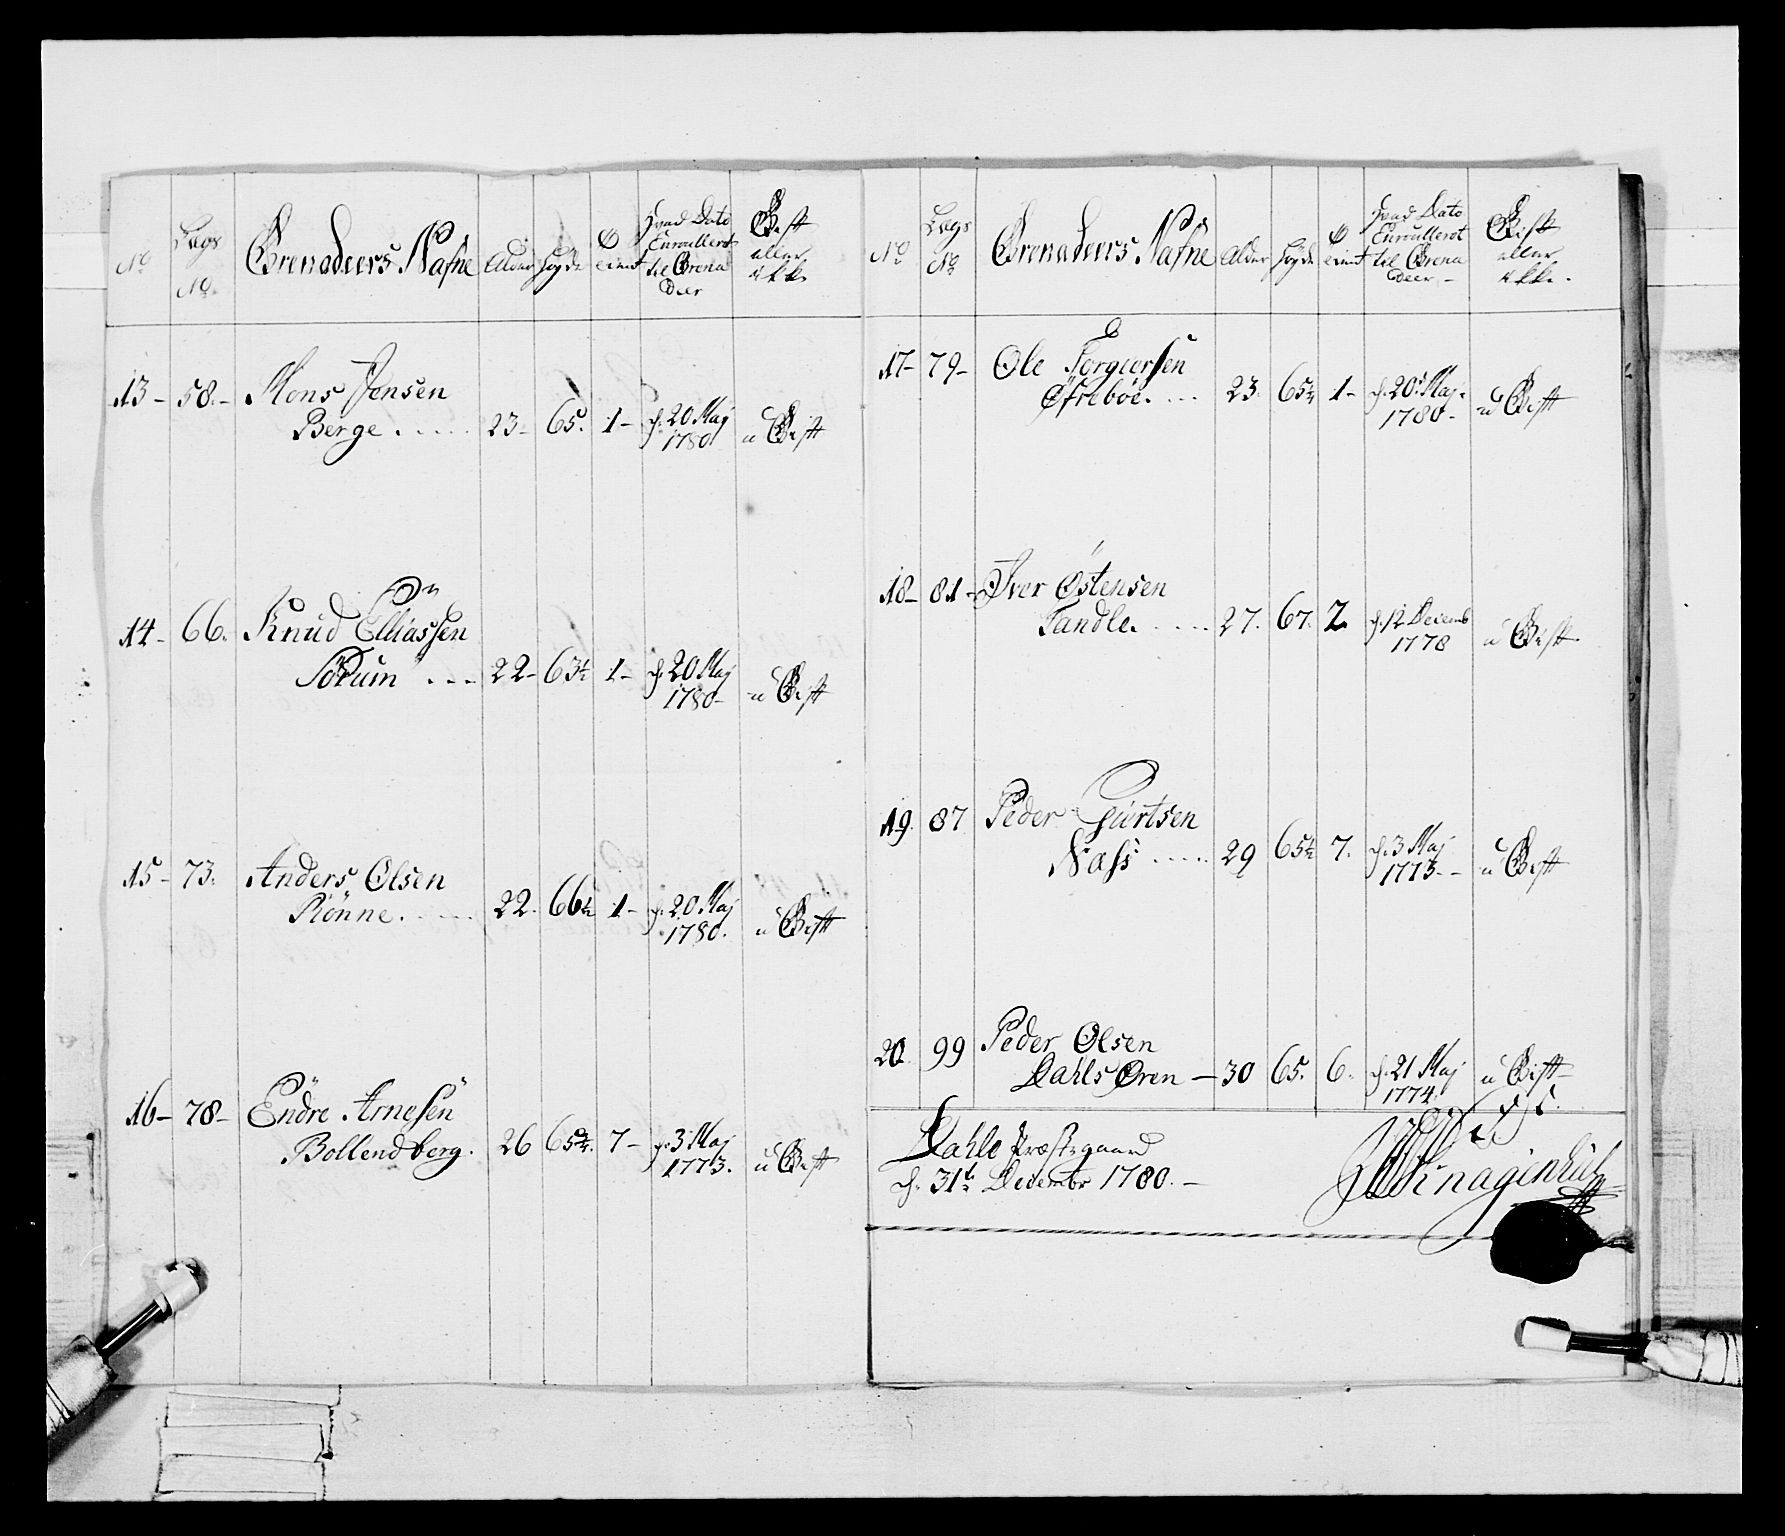 No
Lægs No
Grenadeers Nafne
Alder
Høyde
Tient
Hvad Dato
Enroulleret
til Grena
deer
Gift
eller
ikke
13 - 58 - Mons Jensen
Berge ..... 23 - 65. 1 - d. 20 Maj
1780 u Gift
14 - 66. Knud Elliassen
Sörum ... 22 - 63½ 1 - d. 20 Maj
1780 - u Gift
15 - 73. Anders Olsen
Rönne ..... 22. 66½ 1 - d. 20 Maj
1780. u Gift
16 - 78 - Endre Arnesen
Bollendberg. 26 65¾. 7 - d. 3 Maj
1773. u Gift
No
Lægs
No
Grenadeers Nafne
Alder
Høyde
Tient
Hvad Dato
Enroulleret
til Grena
deer -
Gift
eller
ikke.
17 - 79 - Ole Torgiersen
Øfrebøe. ... 23. 1 - d. 20 Maj.
1780 - u Gift
18 - 81 - Iver Östensen
..... 27. 67. 2. d. 12 Decemb
1778 u Gift
19. 87 Peder Giertsen
Næss ..... 29 65½ 7. d. 3 Maj
1773 - u Gift
20. 99 Peder Olsen
Dahls Øren - 30 65. 6. d. 21 Maj
1774. u Gift
Dahle Præstegaard
d. 31te Decembr 1780. -